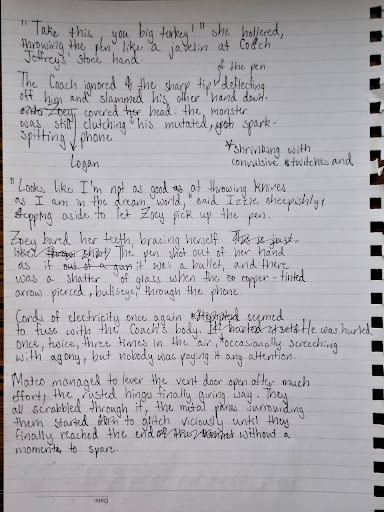 "Take this, you big turkey!" she hollered,
throwing the pen like a javelin at Coach
Jeffrey's stone hand
of the pen
The Coach ignored the sharp tip deflecting
off him and slammed his other hand down.
onto Zoey covered her head: the monster
was still clutching his mutated, spark-
spitting phone
*shrinking with
Logan
convulsive twitches and
"Looks like I'm not as good as at throwing knives
as I am in the dream world," said Izzie sheepishly,
stepping aside to let Zoey pick up the pen.
Zoey bared her teeth, bracing herself. This is just
like The pen shot out of her hand
as if out of a gun it was a bullet, and there
was a shatter of glass when the copper-tinted
arrow pierced, bullseye, through the phone.
Cords of electricity once again attempted seemed
to fuse with the Coach's body. It hurled itself He was hurled
once, twice, three times in the air, *occasionally screeching
with agony, but nobody was paying it any attention.
Mateo managed to lever the vent door open after much
effort, the rusted hinges finally giving way. They
all scrabbled through it, the metal panes surrounding
them started to glitch viciously until they
finally reached the end of the without a
moment to spare.
Date